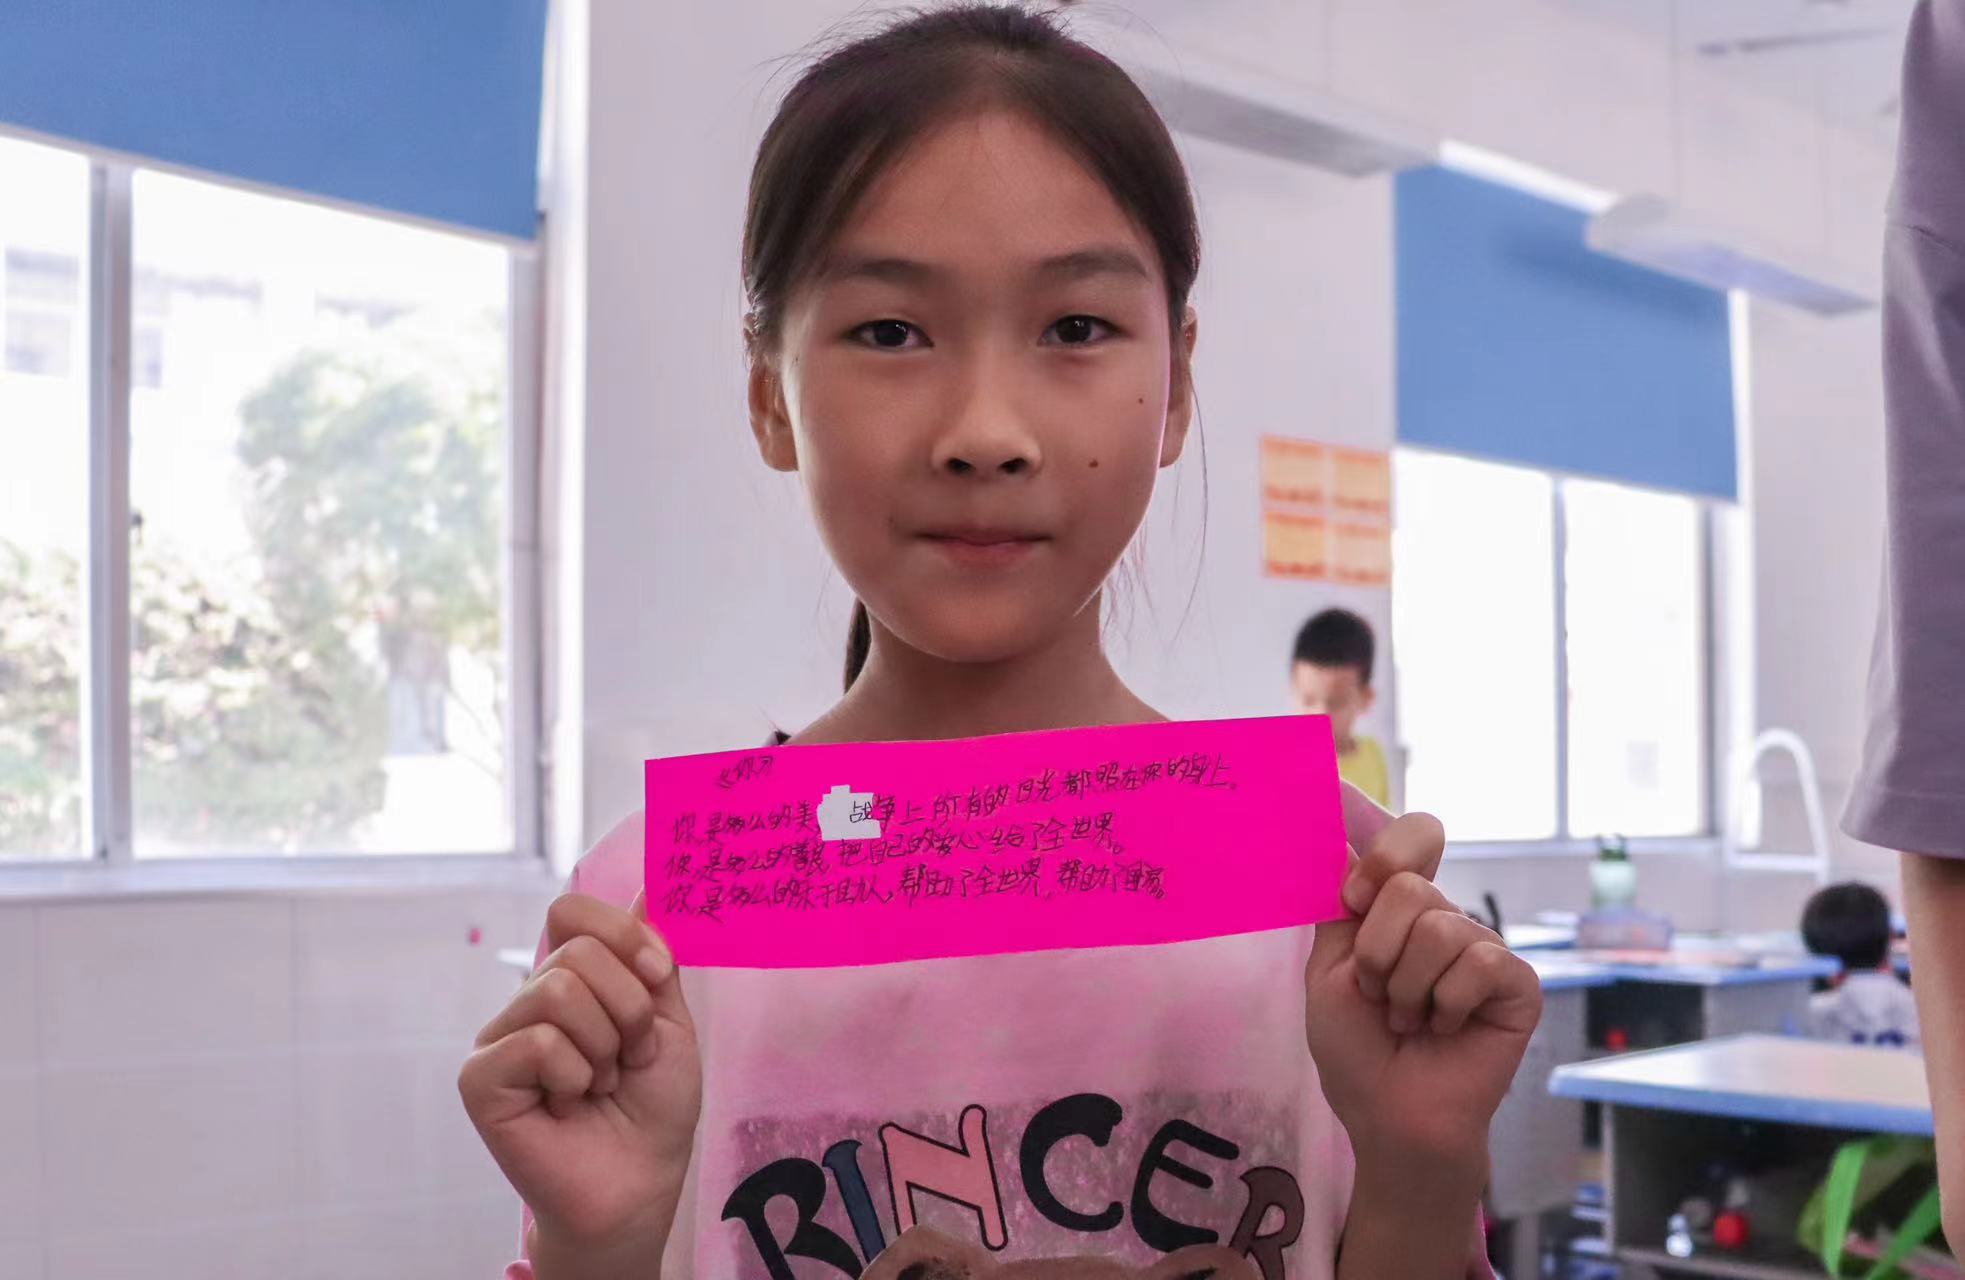 《你》
你是多么的美 战争上所有的日光都照在你的身上。
你是多么的善良,把自己的爱心给了全世界。
你是多么的乐于助人,帮助了全世界,帮助了国家。
RINCER